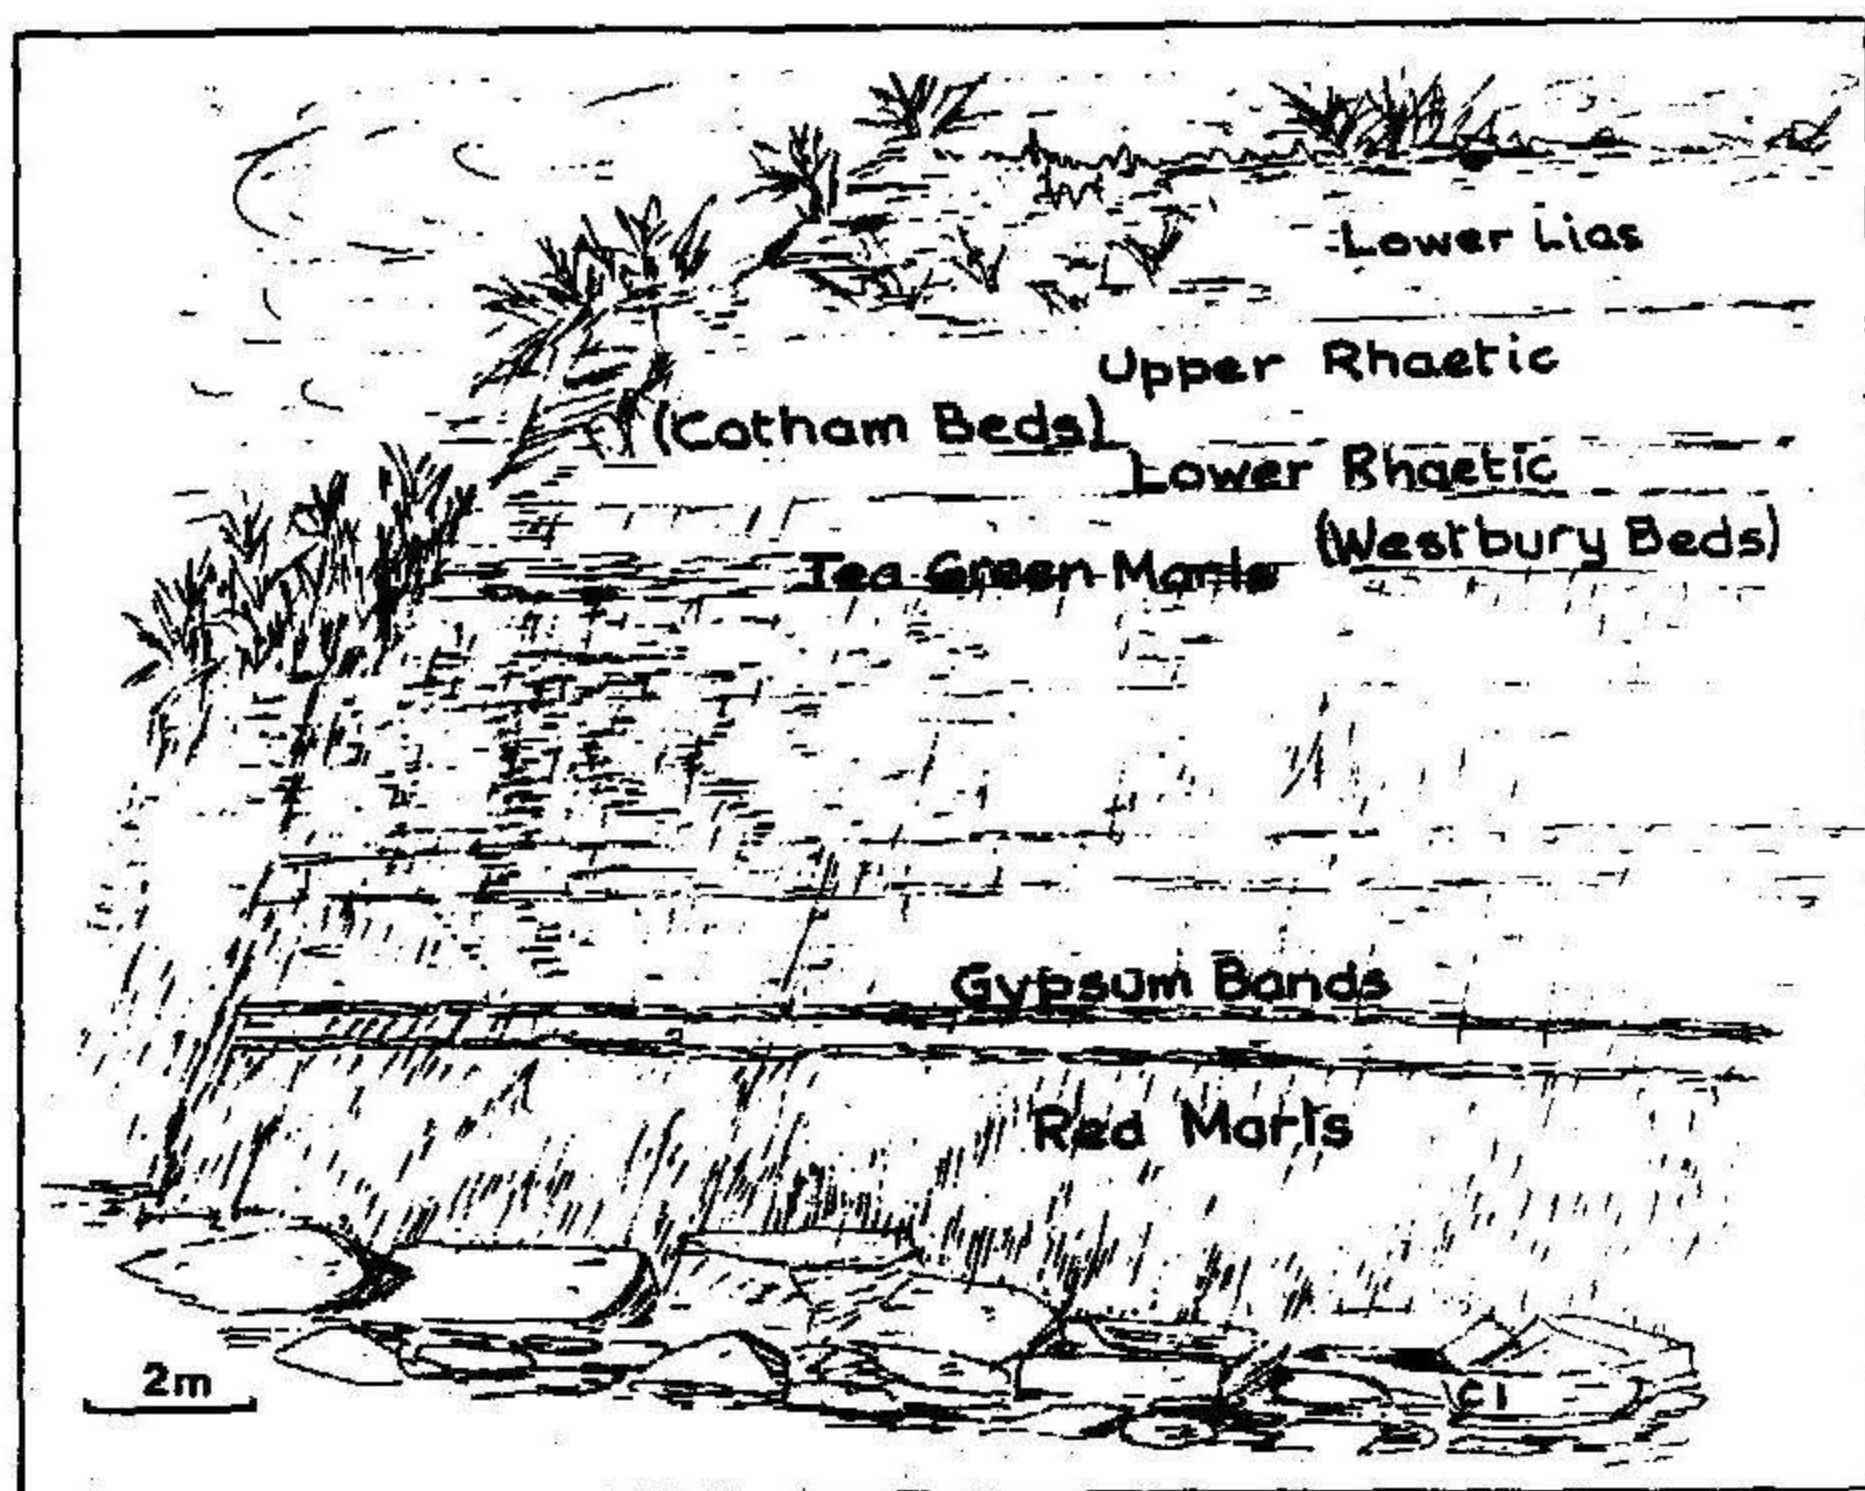 Lower Lias
Upper Rhaetic
(Cotham Beds)
Lower Rhaetic
(Westbury Beds)
Tea Green Marls
Gypsum Bands
Red Marls
2m
CI